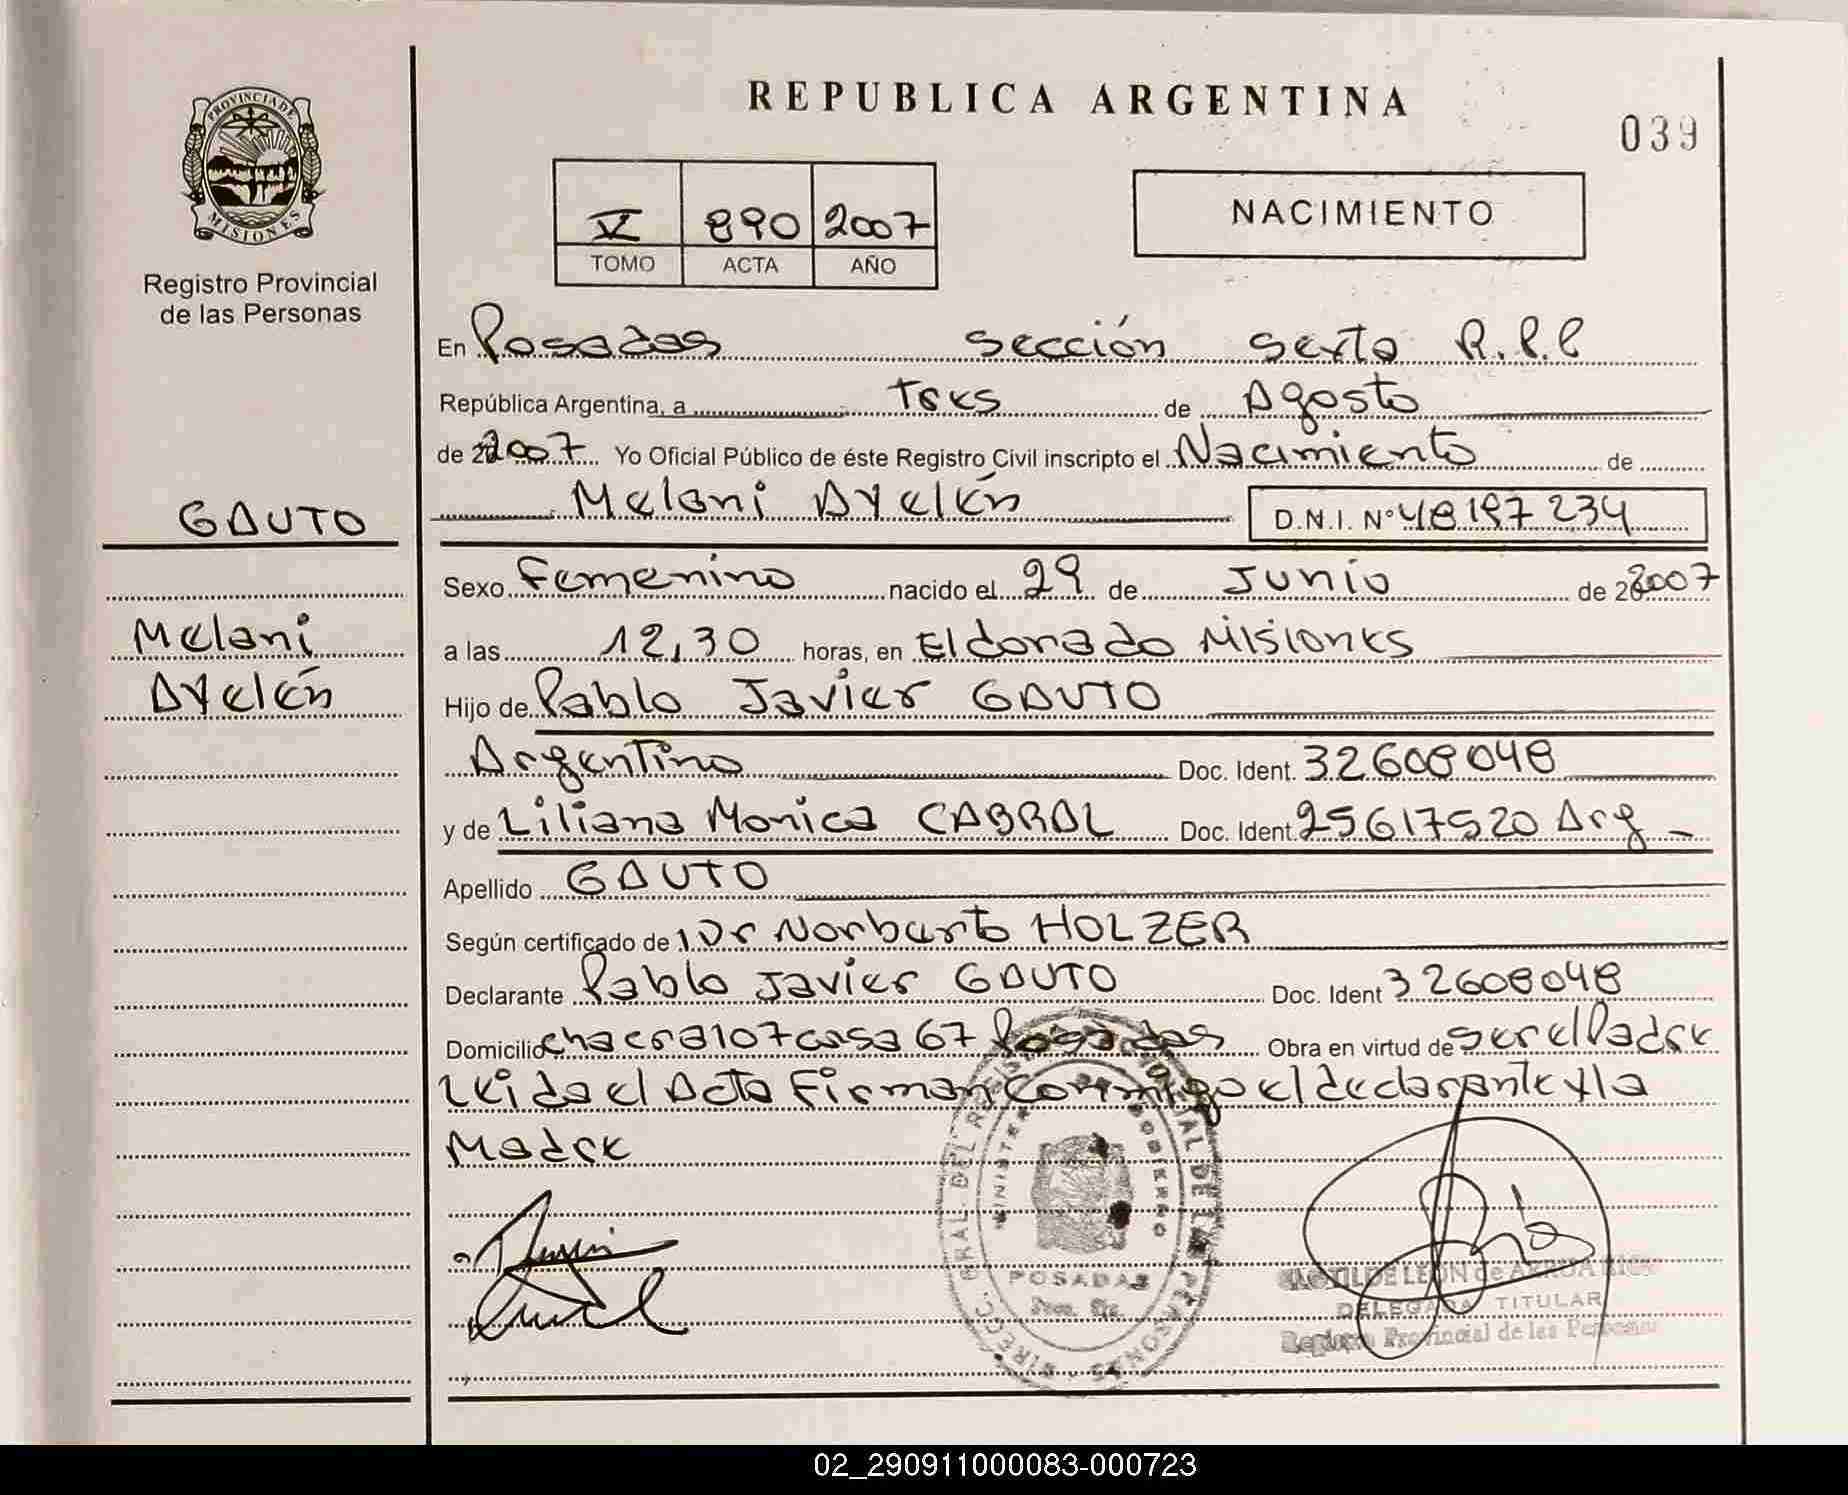 REPUBLICA ARGENTINA
039
PROVINCIA DE MISIONES
Registro Provincial
de las Personas
V 890 2007
TOMO ACTA AÑO
NACIMIENTO
En Posadas Sección Sexta R.P.P
República Argentina, a Tres de Agosto
de 2007 Yo Oficial Público de éste Registro Civil inscripto el Nacimiento de
Melani Ayelén D.N.I. Nº 48197234
GAUTO
Sexo Femenino nacido el 29 de Junio de 2007
Melani
a las 12,30 horas, en Eldorado Misiones
Ayelén
Hijo de Pablo Javier GAUTO
Argentino Doc. Ident. 32608048
y de Liliana Monica CABRAL Doc. Ident. 25617520 Arg
Apellido GAUTO
Según certificado de Dr Norberto HOLZER
Declarante Pablo Javier GAUTO Doc. Ident 32608048
Domicilio chacra 107 casa 67 Posadas Obra en virtud de ser el Padre
Leida el Acta Firman conmigo el declarante y la
Madre
DIRECC. GRAL. DEL REGISTRO PROVINCIAL DE LAS PERSONAS
MINISTERIO DE GOBIERNO
POSADAS
CLOTILDE LEON de ARRUA
DELEGADA TITULAR
Registro Provincial de las Personas
02_290911000083-000723